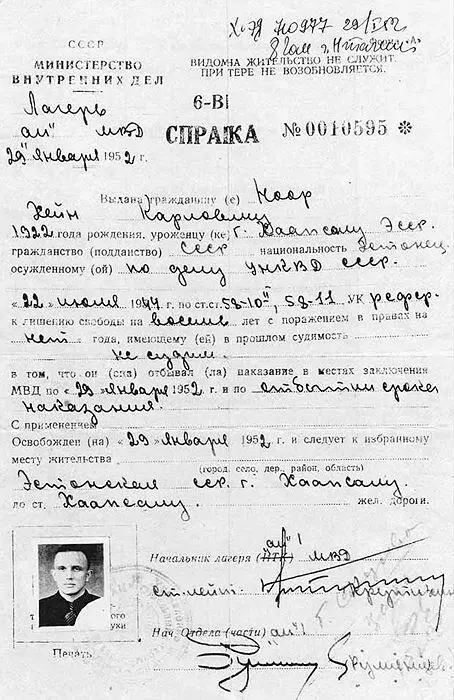 Х-ЭД №0977 29/I 52
СССР
МИНИСТЕРСТВО
ВНУТРЕННИХ ДЕЛ
ВИДОМ НА ЖИТЕЛЬСТВО НЕ СЛУЖИТ.
ПРИ УТЕРЕ НЕ ВОЗОБНОВЛЯЕТСЯ.
6-ВI
Лагерь
МВД
СПРАВКА №0010595 *
29 января 1952 г.
Выдана гражданину (е) Коор
Хейн Карлович
1922 года рождения, уроженцу (ке) г. Хаапсалу Эсср.
гражданство (подданство) СССР национальность Эстонец
осужденному (ой) по делу УНКВД СССР.
«22» июля 1944 г. по ст.ст. 58-10 II, 58-11 УК РСФСР.
к лишению свободы на восемь лет с поражением в правах на
нет года, имеющему (ей) в прошлом судимость
не судим.
в том, что он (она) отбывал (ла) наказание в местах заключения
МВД по «29» января 1952 г. и по отбытии срока
наказания.
С применением
Освобожден (на) «29» января 1952 г. и следует к избранному
месту жительства
(город, село, дер., район, область)
Эстонская сср г. Хаапсалу.
по ст. Хаапсалу жел. дороги.
Начальник лагеря МВД
ст. лейт.
Нач. Отдела (части)
Печать